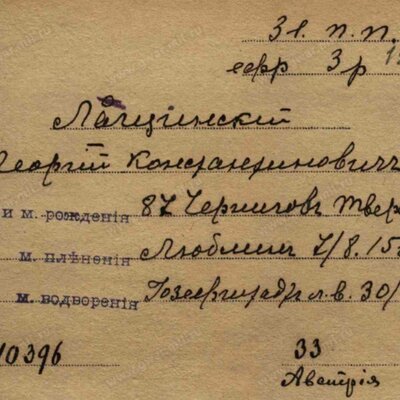 31. п. п.
ефр 3 р
Лащинскій
Георгій Константиновичъ
и м. рожденія 87 Черниговъ Твер
м. плѣненія Люблинъ 7/8. 15
м. водворенія Іозефштадтъ л. в. 30/
10396 33
Австрія